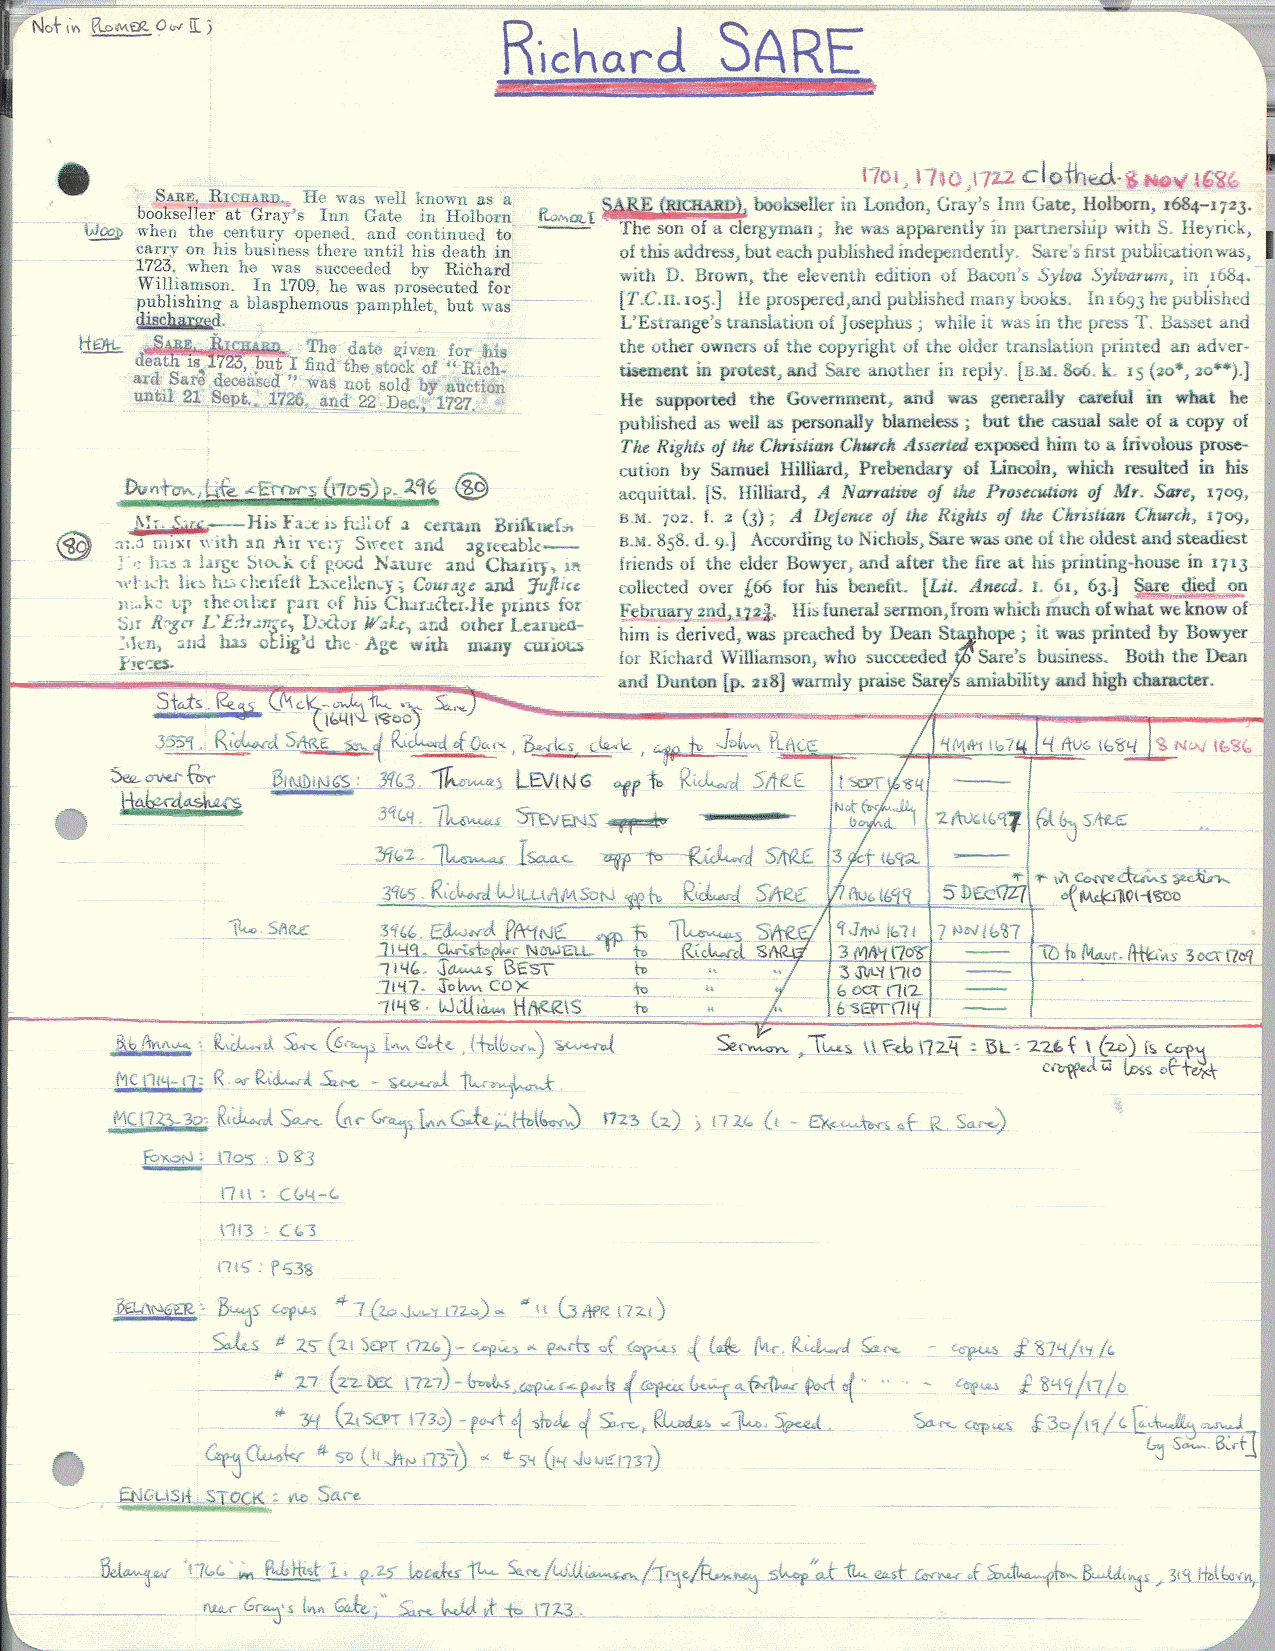 Not in PLOMER O or II;
Richard SARE
1701, 1710, 1722 clothed 8 NOV 1686
WOOD
SARE, RICHARD. He was well known as a
bookseller at Gray's Inn Gate in Holborn
when the century opened, and continued to
carry on his business there until his death in
1723, when he was succeeded by Richard
Williamson. In 1709, he was prosecuted for
publishing a blasphemous pamphlet, but was
discharged.
HEAL
SARE, RICHARD. The date given for his
death is 1723, but I find the stock of "Rich-
ard Sare deceased" was not sold by auction
until 21 Sept., 1726, and 22 Dec., 1727.
Dunton, Life & Errors (1705) p. 296 (80)
(80)
Mr. Sare——His Face is full of a certain Briskness
and mixt with an Air very Sweet and agreeable——
He has a large Stock of good Nature and Charity, in
which lies his cheifest Excellency; Courage and Justice
make up the other part of his Character. He prints for
Sir Roger L'Estrange, Doctor Wake, and other Learned-
Men, and has oblig'd the Age with many curious
Pieces.
PLOMER I
SARE (RICHARD), bookseller in London, Gray's Inn Gate, Holborn, 1684–1723.
The son of a clergyman; he was apparently in partnership with S. Heyrick,
of this address, but each published independently. Sare's first publication was,
with D. Brown, the eleventh edition of Bacon's Sylva Sylvarum, in 1684.
[T.C. II. 105.] He prospered, and published many books. In 1693 he published
L'Estrange's translation of Josephus; while it was in the press T. Basset and
the other owners of the copyright of the older translation printed an adver-
tisement in protest, and Sare another in reply. [B.M. 806. k. 15 (20*, 20**).]
He supported the Government, and was generally careful in what he
published as well as personally blameless; but the casual sale of a copy of
The Rights of the Christian Church Asserted exposed him to a frivolous prose-
cution by Samuel Hilliard, Prebendary of Lincoln, which resulted in his
acquittal. [S. Hilliard, A Narrative of the Prosecution of Mr. Sare, 1709,
B.M. 702. f. 2 (3); A Defence of the Rights of the Christian Church, 1709,
B.M. 858. d. 9.] According to Nichols, Sare was one of the oldest and steadiest
friends of the elder Bowyer, and after the fire at his printing-house in 1713
collected over £66 for his benefit. [Lit. Anecd. I. 61, 63.] Sare died on
February 2nd, 172¾. His funeral sermon, from which much of what we know of
him is derived, was preached by Dean Stanhope; it was printed by Bowyer
for Richard Williamson, who succeeded to Sare's business. Both the Dean
and Dunton [p. 218] warmly praise Sare's amiability and high character.
Stats. Regs (McK - only the one Sare)
(1641-1800)
3559. Richard SARE son of Richard of Oare, Berks, clerk, app to John PLACE 4 MAY 1674 4 AUG 1684 8 NOV 1686
See over for
Haberdashers
BINDINGS: 3963. Thomas LEVING app to Richard SARE 1 SEPT 1684 —
3964. Thomas STEVENS app to Not formally bound 2 AUG 1697 fd by SARE
3962. Thomas Isaac app to Richard SARE 3 Oct 1692 —
3965. Richard WILLIAMSON app to Richard SARE 7 AUG 1699 5 DEC 1727 * * in corrections section
of McK 1701-1800
Tho. SARE 3966. Edward PAYNE app to Thomas SARE 9 JAN 1671 7 NOV 1687
7149. Christopher NOWELL to Richard SARE 3 MAY 1708 — TO to Maur. Atkins 3 OCT 1709
7146. James BEST to " " 3 JULY 1710 —
7147. John COX to " " 6 OCT 1712 —
7148. William HARRIS to " " 6 SEPT 1714 —
Bib Annua: Richard Sare (Grays Inn Gate, Holborn) several
Sermon, Tues 11 Feb 1724 = BL: 226 f 1 (20) is copy
cropped w loss of text
MC1714-17: R. or Richard Sare - several throughout.
MC1723-30: Richard Sare (nr Grays Inn Gate in Holborn) 1723 (2); 1726 (1 - Executors of R. Sare)
FOXON: 1705: D83
1711: C64-6
1713: C63
1715: P538
BELANGER: Buys copies #7 (20 JULY 1720) & #11 (3 APR 1721)
Sales # 25 (21 SEPT 1726) - copies & parts of copies of late Mr. Richard Sare - copies £874/14/6
# 27 (22 DEC 1727) - books, copies & parts of copies being a farther part of " " " - copies £849/17/0
# 34 (21 SEPT 1730) - part of stock of Sare, Rhodes & Tho. Speed. Sare copies £30/19/6 [actually owned
by Sam. Birt]
Copy Cluster # 50 (11 JAN 1737) & # 54 (14 JUNE 1737)
ENGLISH STOCK: no Sare
Belanger '1766' in PubHist I: p.25 locates the Sare/Williamson/Trye/Flexney shop "at the east corner of Southampton Buildings, 319 Holborn,
near Gray's Inn Gate;" Sare held it to 1723.